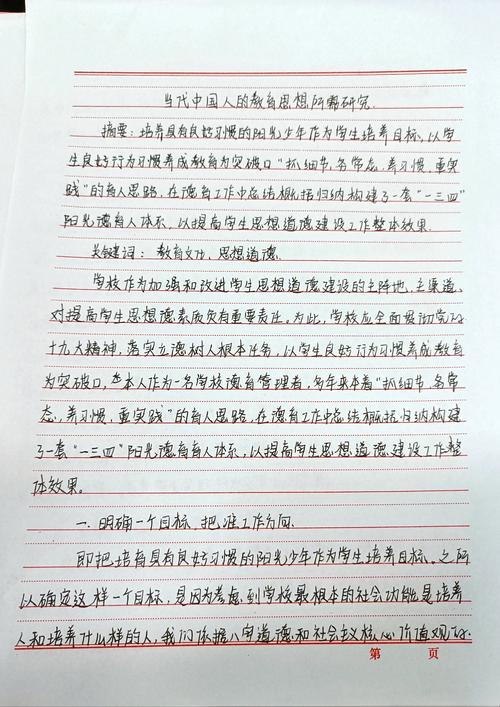 当代中国人的教育思想所需研究.
摘要：培养具有良好习惯的阳光少年作为学生培养目标，以学
生良好行为习惯养成教育为突破口"抓细节，务常态，养习惯，重实
践"的育人思路，在德育工作中总结概括归纳构建了一套"一三四"
阳光德育人体系，以提高学生思想道德建设工作整体效果.
关键词：教育文化，思想道德.
学校作为加强和改进学生思想道德建设的主阵地、主渠道、
对提高学生思想德素质负有重要责任。为此，学校应全面贯彻党的
十九大精神，落实立德树人根本任务，以学生良好行为习惯养成教育
为突破口，本人作为一名学校德育管理者，多年来本着"抓细节 务常
态，养习惯，重实践"的育人思路，在德育工作中总结概括归纳构建
了一套"一三四"阳光德育育人体系，以提高学生思想道德建设工作整
体效果。
一、明确一个目标，把准工作方向.
即把培育具有良好习惯的阳光少年作为学生培养目标。之所
以确定这样一个目标，是因为考虑到学校最根本的社会功能是培养
人和培养什么样的人，我们依据八字道德和社会主义核心价值观的.
第 页